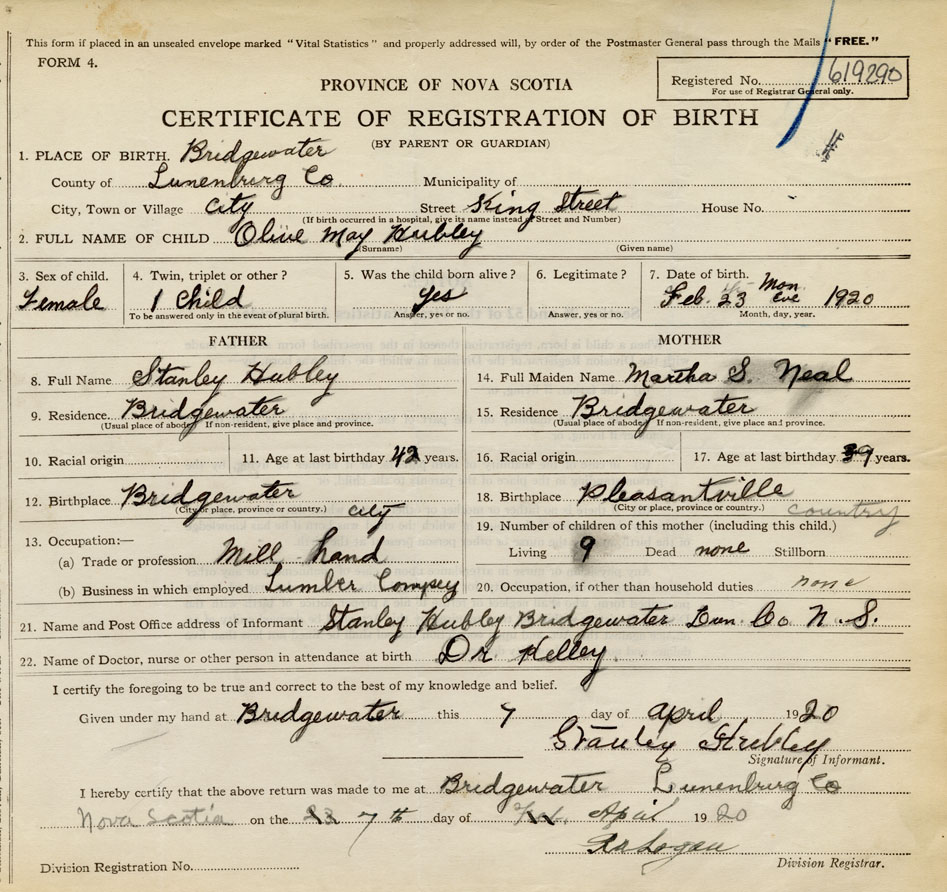 This form if placed in an unsealed envelope marked "Vital Statistics" and properly addressed will, by order of the Postmaster General pass through the Mails "FREE."
FORM 4.
Registered No. 619290
For use of Registrar General only.
PROVINCE OF NOVA SCOTIA
CERTIFICATE OF REGISTRATION OF BIRTH
(BY PARENT OR GUARDIAN)
1. PLACE OF BIRTH. Bridgewater
County of Lunenburg Co. Municipality of
City, Town or Village City Street King Street House No.
(If birth occurred in a hospital, give its name instead of Street and Number)
2. FULL NAME OF CHILD Olive May Hubley
(Surname) (Given name)
3. Sex of child. 4. Twin, triplet or other? 5. Was the child born alive? 6. Legitimate? 7. Date of birth.
Female 1 Child yes Feb. 23 Mon Eve 1920
To be answered only in the event of plural birth. Answer, yes or no. Answer, yes or no. Month, day, year.
FATHER
8. Full Name Stanley Hubley
9. Residence. Bridgewater
(Usual place of abode. If non-resident, give place and province.
10. Racial origin 11. Age at last birthday 42 years.
12. Birthplace Bridgewater
(City or place, province or country.) city
13. Occupation:—
(a) Trade or profession Mill hand
(b) Business in which employed Lumber Compey
MOTHER
14. Full Maiden Name Martha S. Neal
15. Residence Bridgewater
(Usual place of abode. If non-resident, give place and province.
16. Racial origin 17. Age at last birthday 39 years.
18. Birthplace Pleasantville
(City or place, province or country.) country
19. Number of children of this mother (including this child.)
Living 9 Dead none Stillborn
20. Occupation, if other than household duties none
21. Name and Post Office address of Informant Stanley Hubley Bridgewater Lun Co N.S.
22. Name of Doctor, nurse or other person in attendance at birth Dr Kelley
I certify the foregoing to be true and correct to the best of my knowledge and belief.
Given under my hand at Bridgewater this 7 day of April 1920
Stanley Hubley
Signature of Informant.
I hereby certify that the above return was made to me at Bridgewater Lunenburg Co
Nova Scotia on the 23 7th day of Feb. April 1920
Division Registration No. Division Registrar.